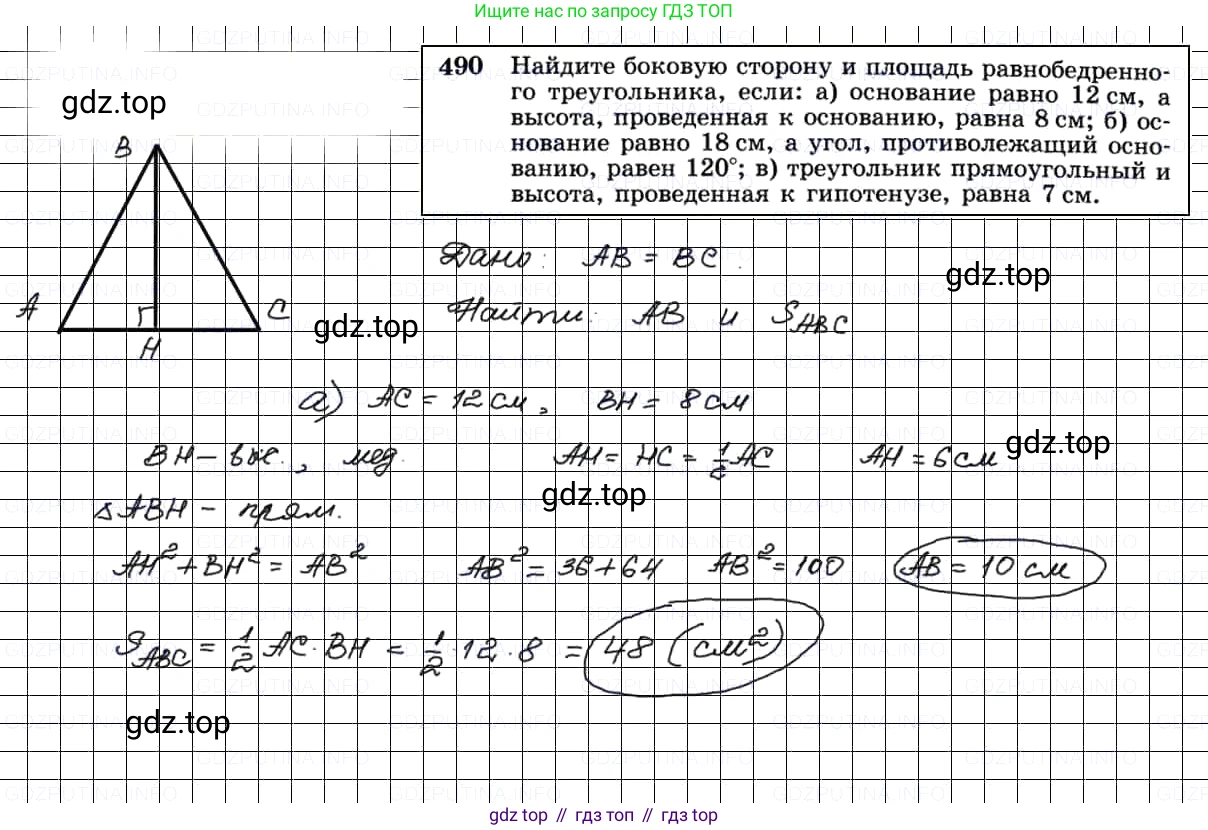 Ищите нас по запросу ГДЗ ТОП
490 Найдите боковую сторону и площадь равнобедренно-
го треугольника, если: а) основание равно 12 см, а
высота, проведенная к основанию, равна 8 см; б) ос-
нование равно 18 см, а угол, противолежащий осно-
ванию, равен 120°; в) треугольник прямоугольный и
высота, проведенная к гипотенузе, равна 7 см.
gdz.top
B
A
C
H
gdz.top
Дано: AB = BC.
gdz.top
Найти: AB и S_ABC
а) AC = 12 см, BH = 8 см
BH – выс., мед. AH = HC = 1/2 AC AH = 6 см
gdz.top
gdz.top
△ABH – прям.
AH² + BH² = AB² AB² = 36 + 64 AB² = 100 AB = 10 см
S_ABC = 1/2 AC · BH = 1/2 · 12 · 8 = 48 (см²)
gdz.top
gdz top // гдз топ // gdz top
GDZPUTINA.INFO